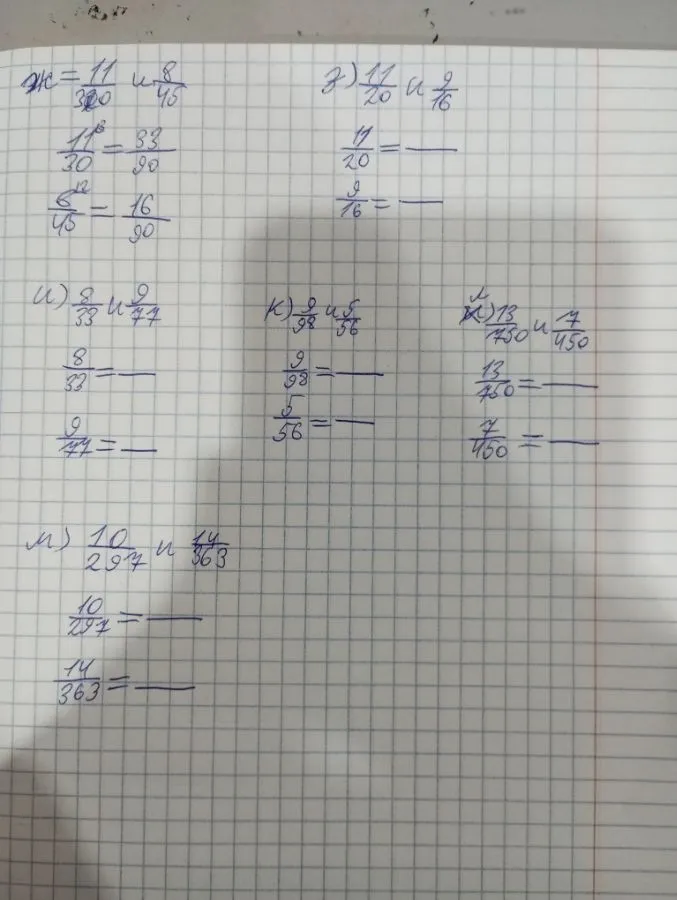 ж = 11/30 и 8/45
11/30 = 33/90
8/45 = 16/90
з) 11/20 и 9/16
11/20 = —
9/16 = —
и) 8/33 и 9/77
8/33 = —
9/77 = —
к) 9/98 и 5/56
9/98 = —
5/56 = —
л) 13/750 и 7/450
13/750 = —
7/450 = —
м) 10/297 и 14/363
10/297 = —
14/363 = —